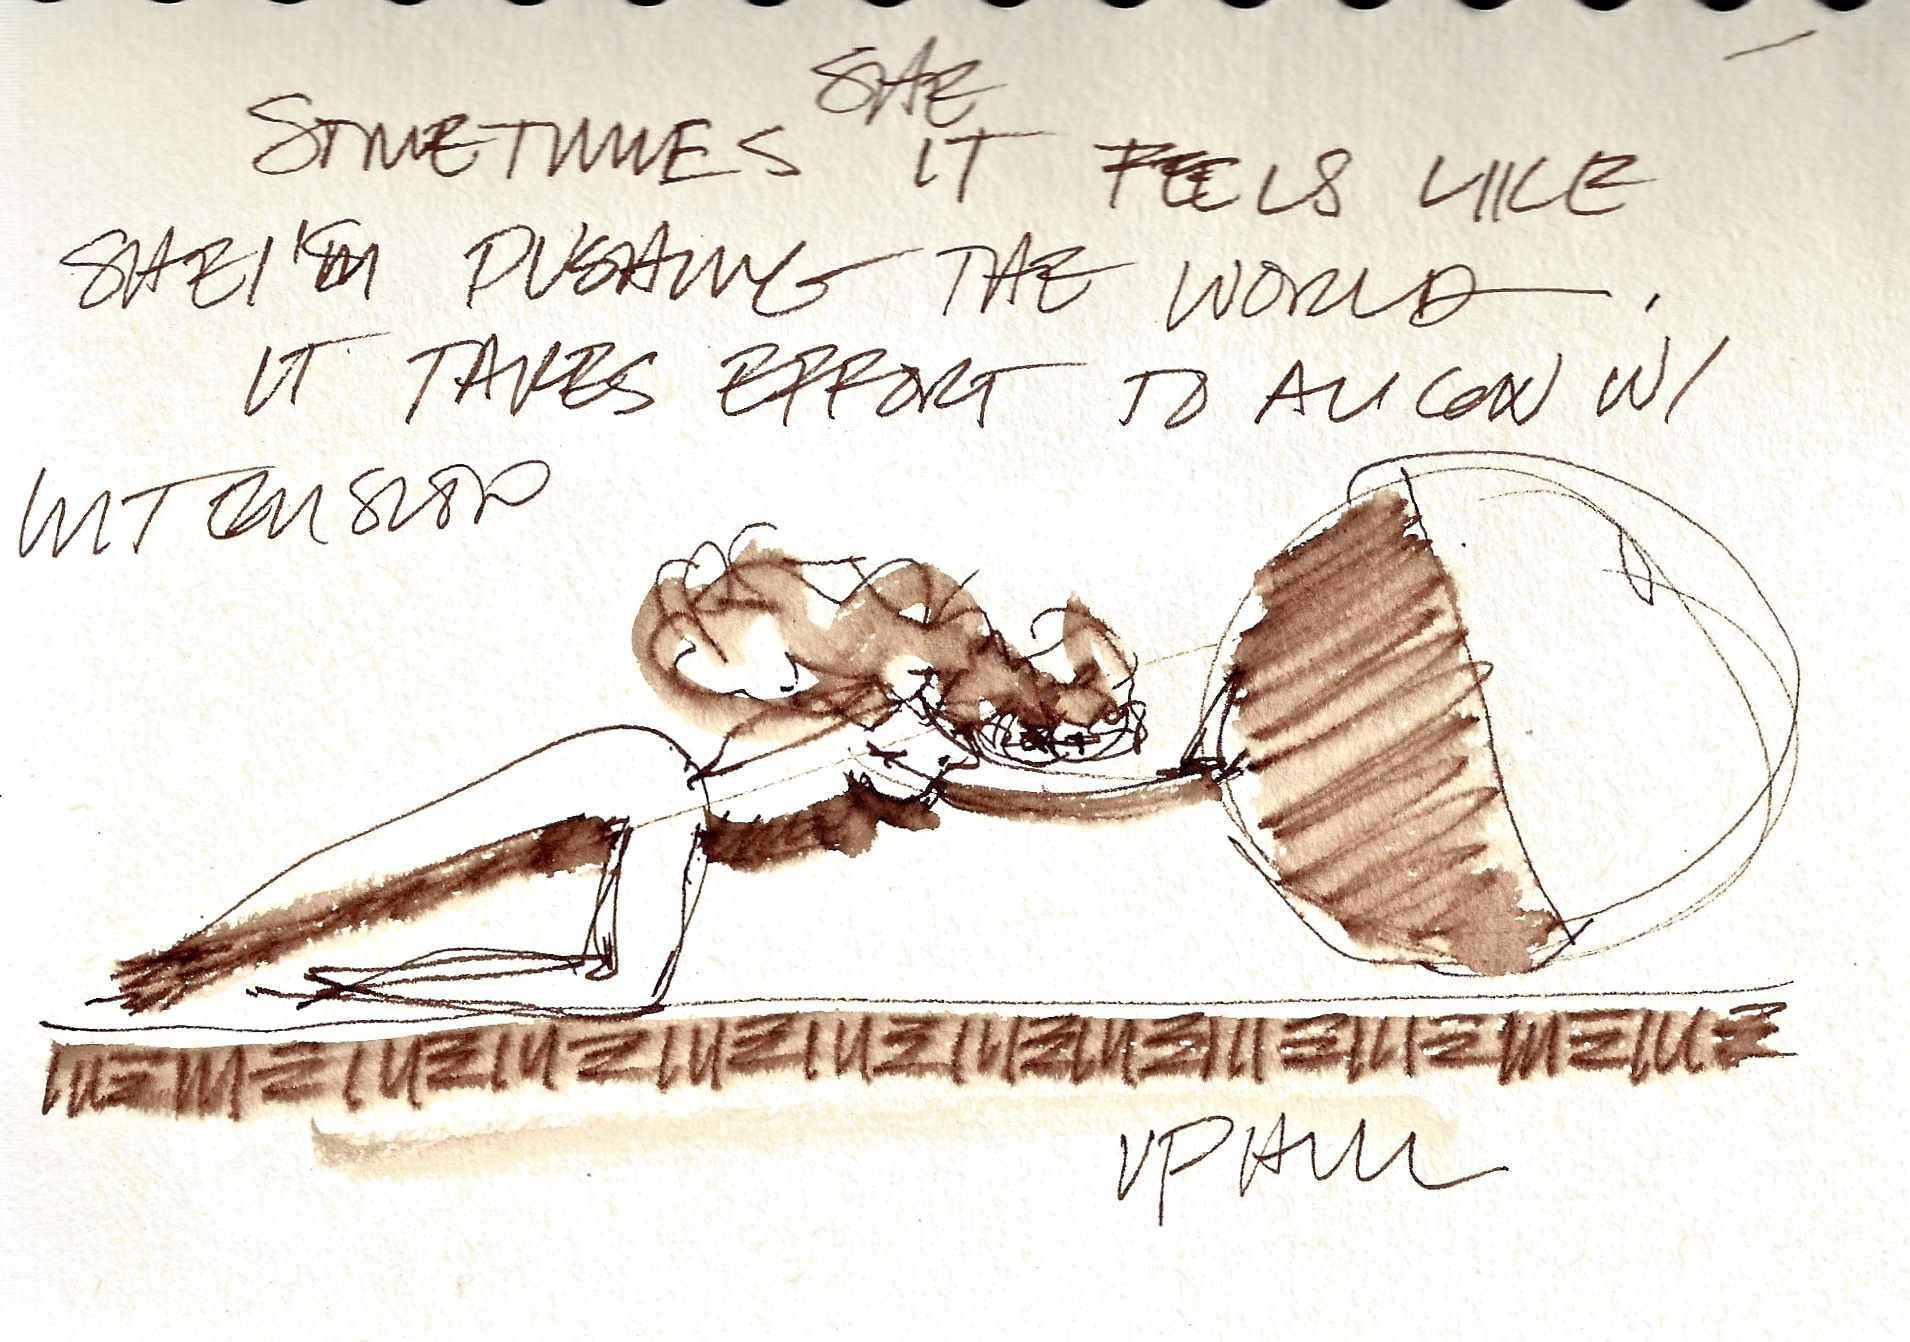 SHE
SOMETIMES IT FEELS LIKE
PUSHING THE WORLD.
IT TAKES EFFORT TO ALIGN W/
INTENSION
VPHALL